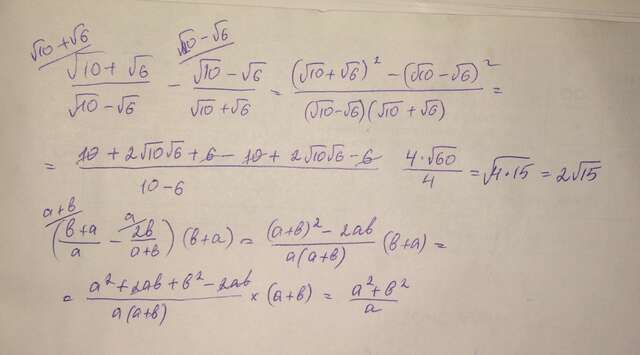 √10+√6 √10-√6
(√10+√6)/(√10-√6) - (√10-√6)/(√10+√6) = ((√10+√6)² - (√10-√6)²)/((√10-√6)(√10+√6)) =
= (10+2√10√6+6-10+2√10√6-6)/(10-6) (4·√60)/4 = √4·15 = 2√15
a+в a
((в+a)/a - 2в/(a+в))(в+a) = ((a+в)²-2aв)/(a(a+в)) (в+a) =
= (a²+2aв+в²-2aв)/(a(a+в)) × (a+в) = (a²+в²)/a